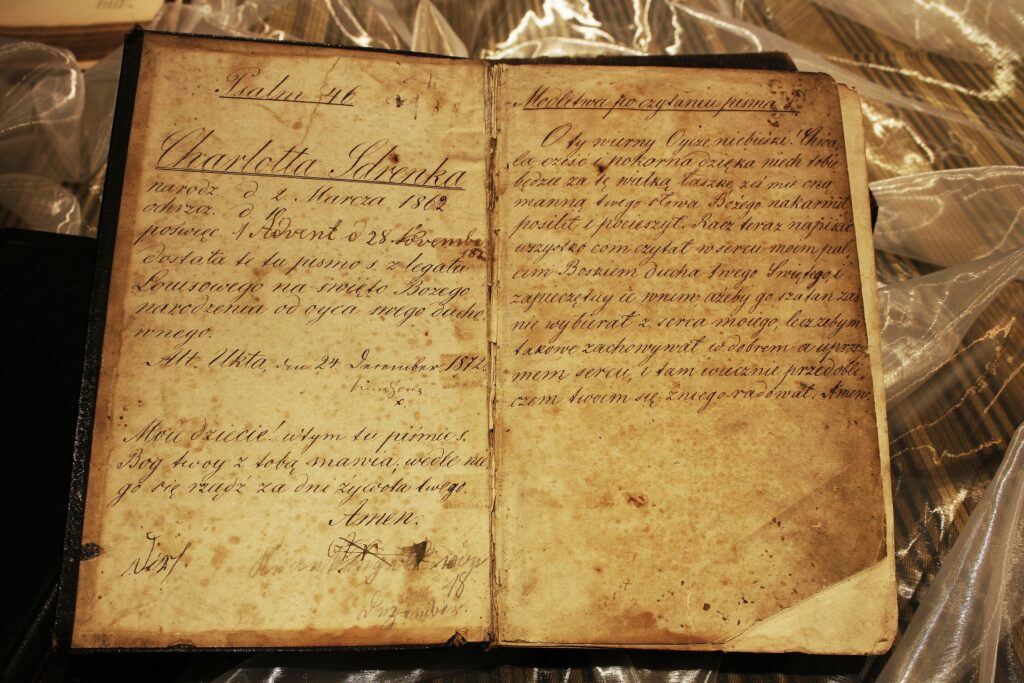 Psalm 46
Charlotta Sdrenka
narodz. d. 2. Marcza 1862
ochrzcz. d. 16
poświęc. 1 Advent d 28 Novembr
187
dostała te tu pismo s. z legatu
Louisowego na święto Bożego
narodzenia od oyca swego ducho,
wnego.
Alt. Ukta, den 24 December 1872.
x
Moie dziecię! wtym tu piśmie s.
Bog twoy z tobą mawia, wedle nie,
go się rządź za dni żywota twego.
Amen.
18
Dezember.
Modlitwa po czytaniu pisma s.
O ty wierny Oycze niebieski! Chwa,
ła, cześć i pokorna dzięka niech tobie
będzie za tę wielką łaskę, żeś mie oną
manną twego słowa Bożego nakarmił
posilił i pocieszył. Racz teraz napisać
wszystko com czytał w sercu moim pal,
cem Boskiem ducha twego Świętego, i
zapieczętuy ie wnim, ażeby go szatan zaś
nie wybierał z serca moiego, lecz żebym
takowe zachowywał w dobrem a uprzy,
mem sercu, i tam wiecznie przed obli,
czem twoim się zniego radował. Amen.